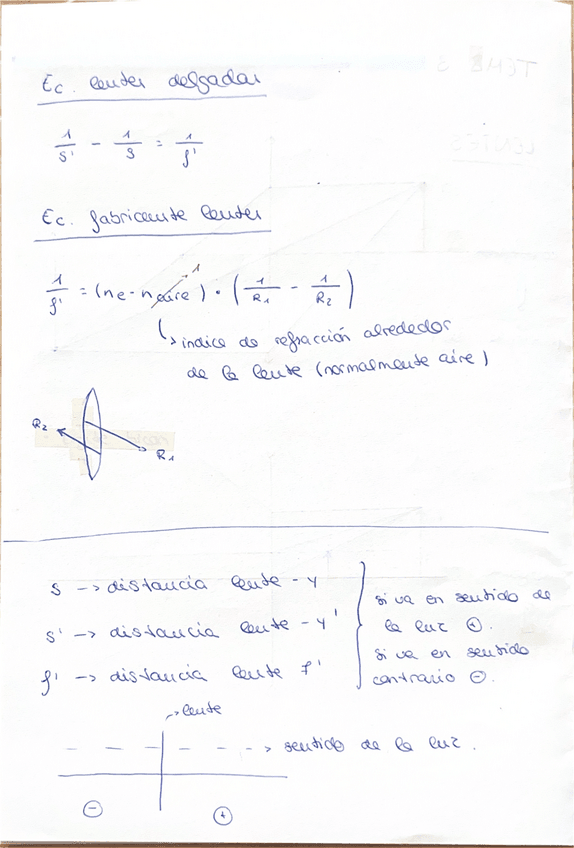 Ec. lentes delgadas
1/s' - 1/s = 1/f'
Ec. fabricante lentes
1/f' = (ne - naire) · (1/R1 - 1/R2)
1
↳ indice de refracción alrededor
de la lente (normalmente aire)
R2
R1
s -> distancia lente - y
s' -> distancia lente - y'
f' -> distancia lente f'
si va en sentido de
la luz ⊕.
si va en sentido
contrario ⊖.
-> lente
-> sentido de la luz.
⊖ ⊕